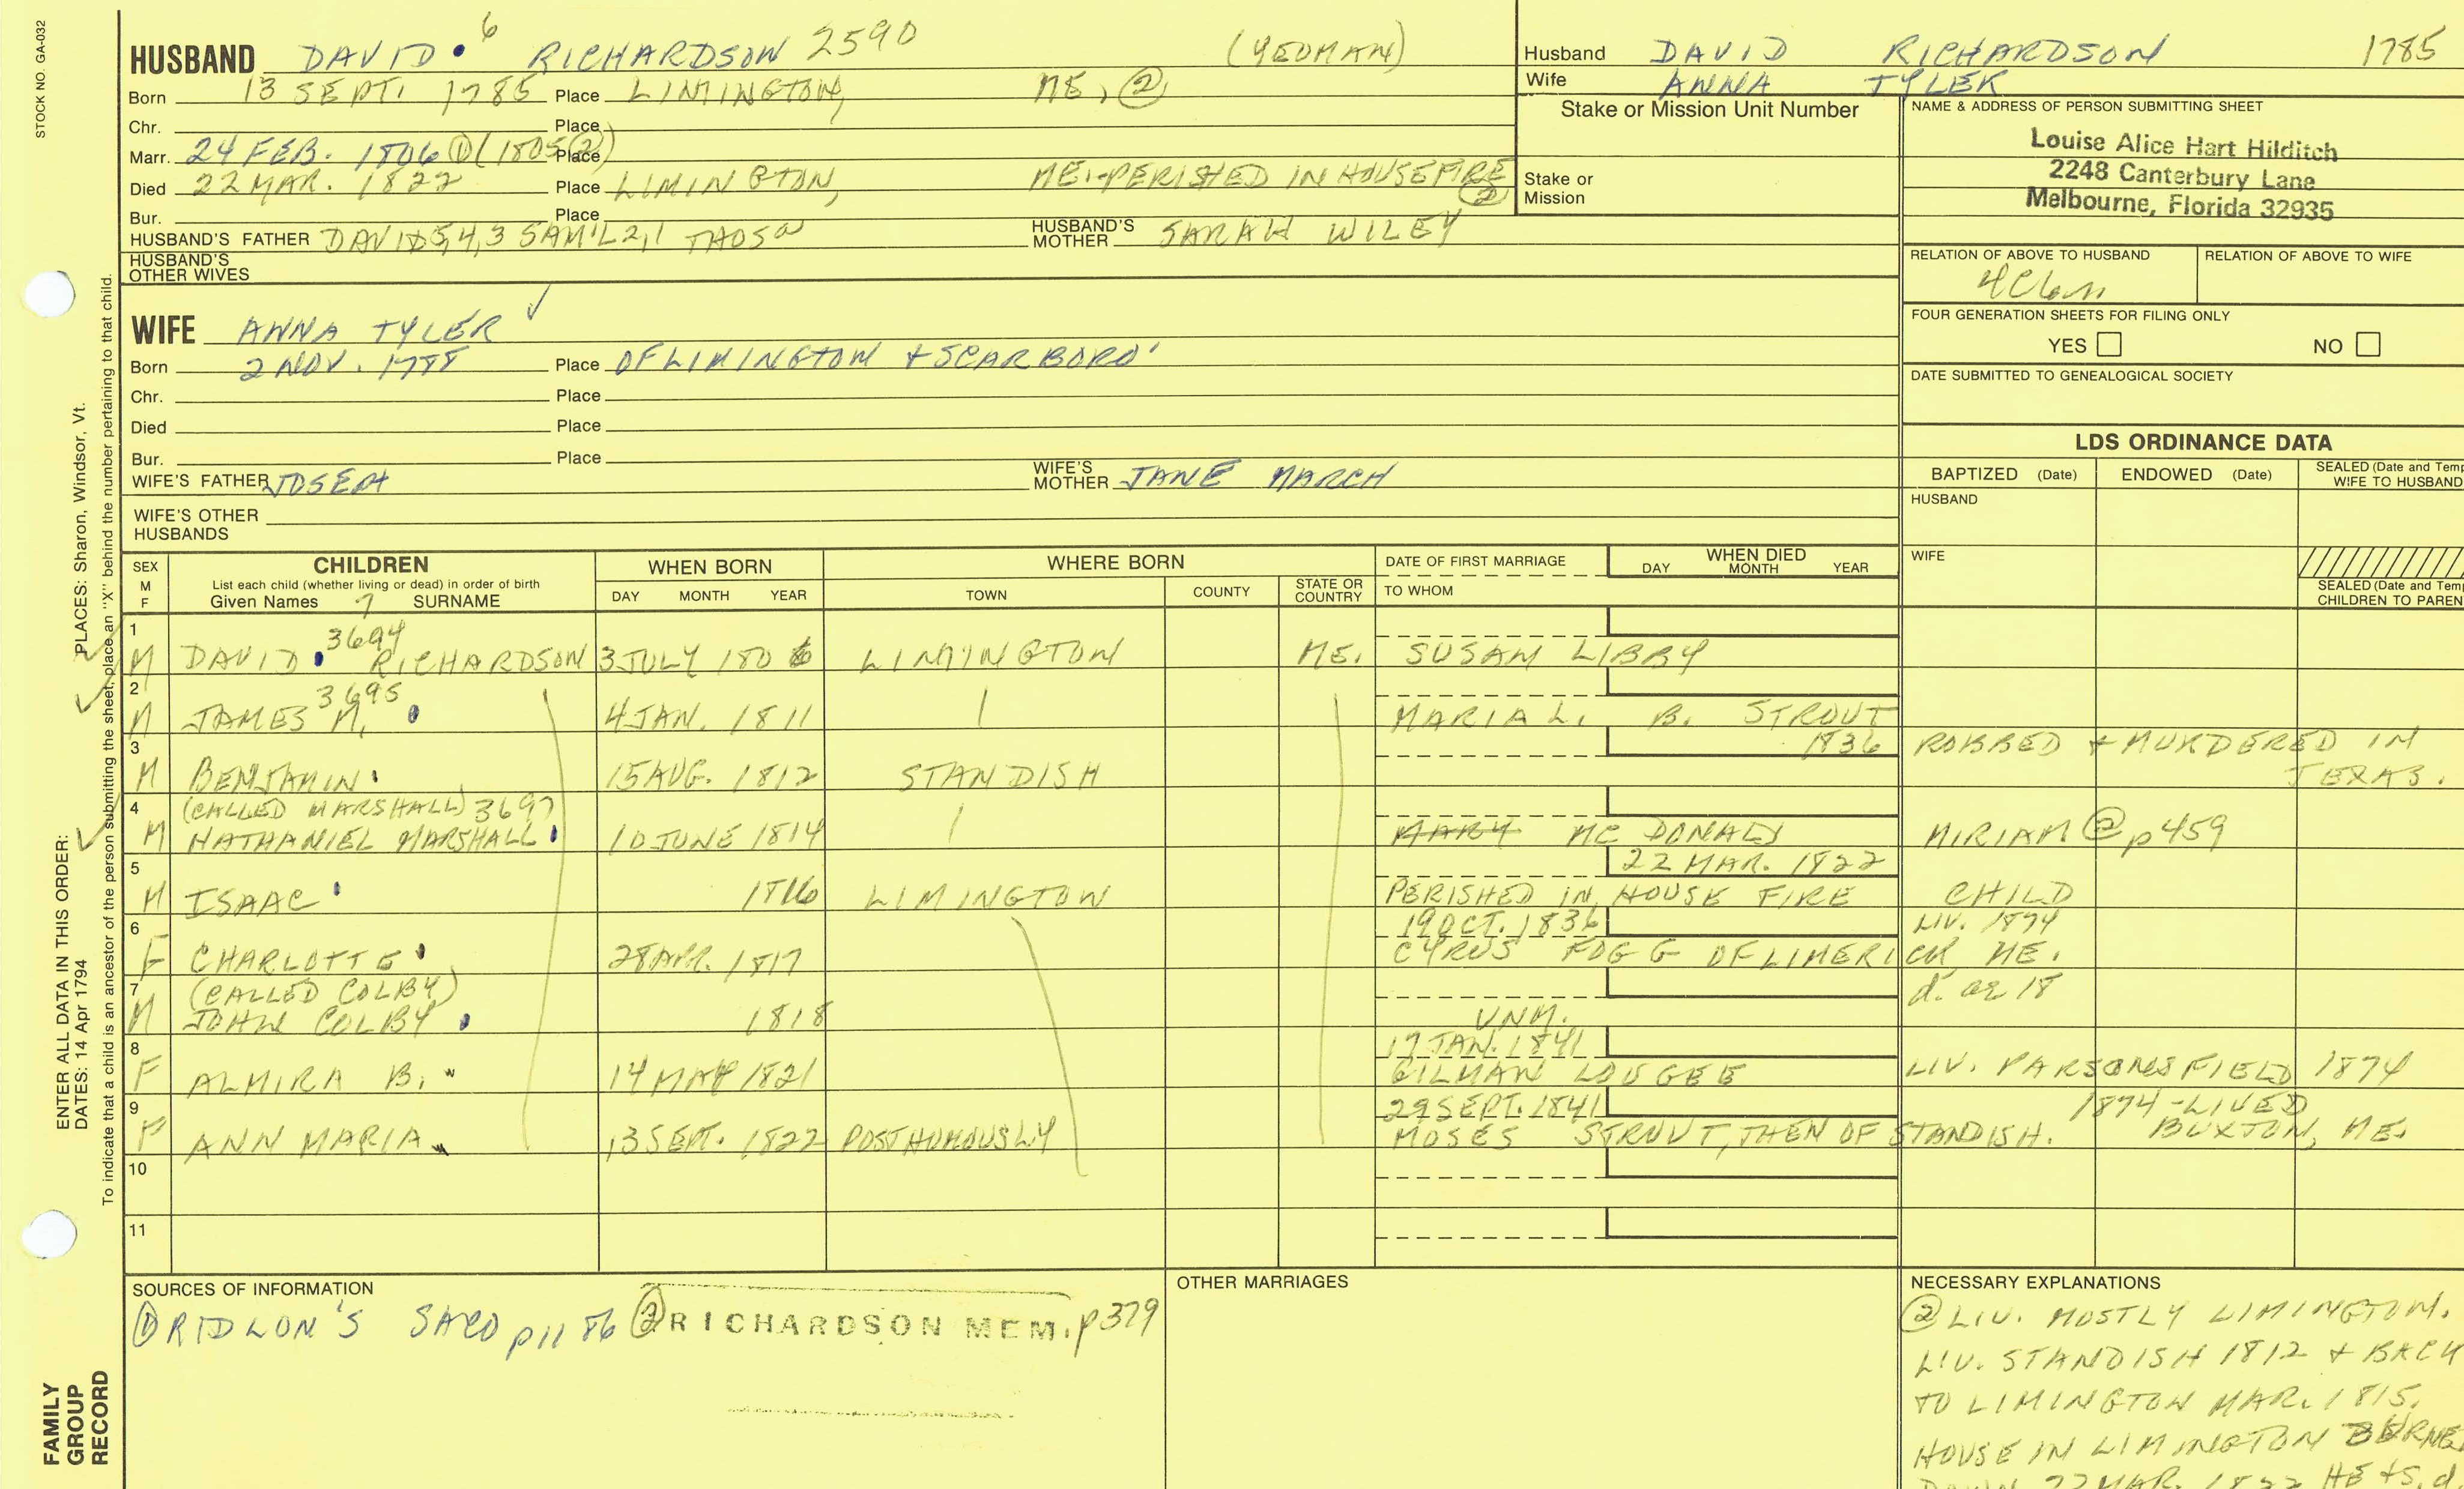 STOCK NO. GA-032
HUSBAND DAVID 6 RICHARDSON 2590 (YEOMAN)
Born 13 SEPT. 1785 Place LIMINGTON, ME, ②
Chr. Place
Marr. 24 FEB. 1806 ① (1805 ②) Place
Died 22 MAR. 1822 Place LIMINGTON, ME.-PERISHED IN HOUSEFIRE ②
Bur. Place
HUSBAND'S FATHER DAVID 5,4,3 SAM'L 2,1 HUSBAND'S MOTHER SARAH WILEY
HUSBAND'S OTHER WIVES
WIFE ANNA TYLER ✓
Born 2 NOV. 1788 Place OF LIMINGTON + SCARBORO'
Chr. Place
Died Place
Bur. Place
WIFE'S FATHER JOSEPH WIFE'S MOTHER JANE MARCH
WIFE'S OTHER HUSBANDS
Husband DAVID RICHARDSON 1785
Wife ANNA TYLER
Stake or Mission Unit Number
Stake or Mission
NAME & ADDRESS OF PERSON SUBMITTING SHEET
Louise Alice Hart Hilditch
2248 Canterbury Lane
Melbourne, Florida 32935
RELATION OF ABOVE TO HUSBAND RELATION OF ABOVE TO WIFE
4C6
FOUR GENERATION SHEETS FOR FILING ONLY
YES NO
DATE SUBMITTED TO GENEALOGICAL SOCIETY
LDS ORDINANCE DATA
BAPTIZED (Date) ENDOWED (Date) SEALED (Date and Temp
WIFE TO HUSBAND
HUSBAND
WIFE
SEALED (Date and Tem
CHILDREN TO PAREN
SEX M F
CHILDREN
List each child (whether living or dead) in order of birth
Given Names 7 SURNAME
WHEN BORN
DAY MONTH YEAR
WHERE BORN
TOWN COUNTY STATE OR COUNTRY
DATE OF FIRST MARRIAGE
TO WHOM
WHEN DIED
DAY MONTH YEAR
1 3694
M DAVID RICHARDSON 3 JULY 1806 LIMINGTON ME. SUSAN LIBBY
2 3695
M JAMES M. 4 JAN. 1811 MARIA L. B. STROUT
3 1836 ROBBED + MURDERED IN
M BENJAMIN 15 AUG. 1812 STANDISH TEXAS.
4 (CALLED MARSHALL) 3697
M NATHANIEL MARSHALL 10 JUNE 1814 MARY MC DONALD MIRIAM @ p459
5 22 MAR. 1822
M ISAAC 1816 LIMINGTON PERISHED IN HOUSE FIRE CHILD
6 19 OCT. 1836 LIV. 1874
F CHARLOTTE 28 APR. 1817 CYRUS FOGG OF LIMERICK ME.
7 (CALLED COLBY) d. ae 18
M JOHN COLBY 1818 UNM.
8 17 JAN. 1841
F ALMIRA B. 14 MAY 1821 GILMAN LOUGEE LIV. PARSONSFIELD 1874
9 29 SEPT. 1841 1874-LIVED
F ANN MARIA 13 SEPT. 1822 POSTHUMOUSLY MOSES STROUT, THEN OF STANDISH. BUXTON, ME.
10
11
SOURCES OF INFORMATION
① RIDLON'S SACO p1186 ② RICHARDSON MEM. p379
OTHER MARRIAGES
NECESSARY EXPLANATIONS
② LIV. MOSTLY LIMINGTON.
LIV. STANDISH 1812 + BACK
TO LIMINGTON MAR. 1815.
HOUSE IN LIMINGTON BURNE
DOWN 22 MAR. 1822 HE + S. d.
PLACES: Sharon, Windsor, Vt.
To indicate that a child is an ancestor of the person submitting the sheet, place an "X" behind the number pertaining to that child.
ENTER ALL DATA IN THIS ORDER:
DATES: 14 Apr 1794
FAMILY
GROUP
RECORD